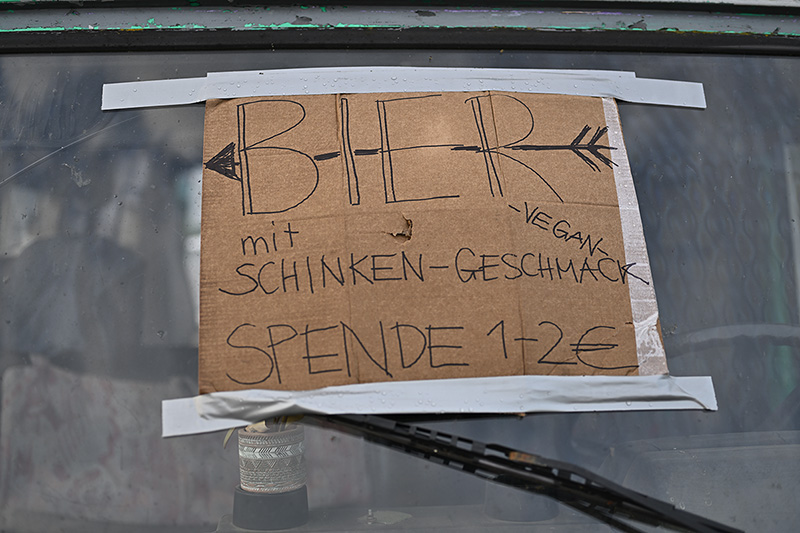 BIER
mit
-VEGAN-
SCHINKEN-GESCHMACK
SPENDE 1-2€